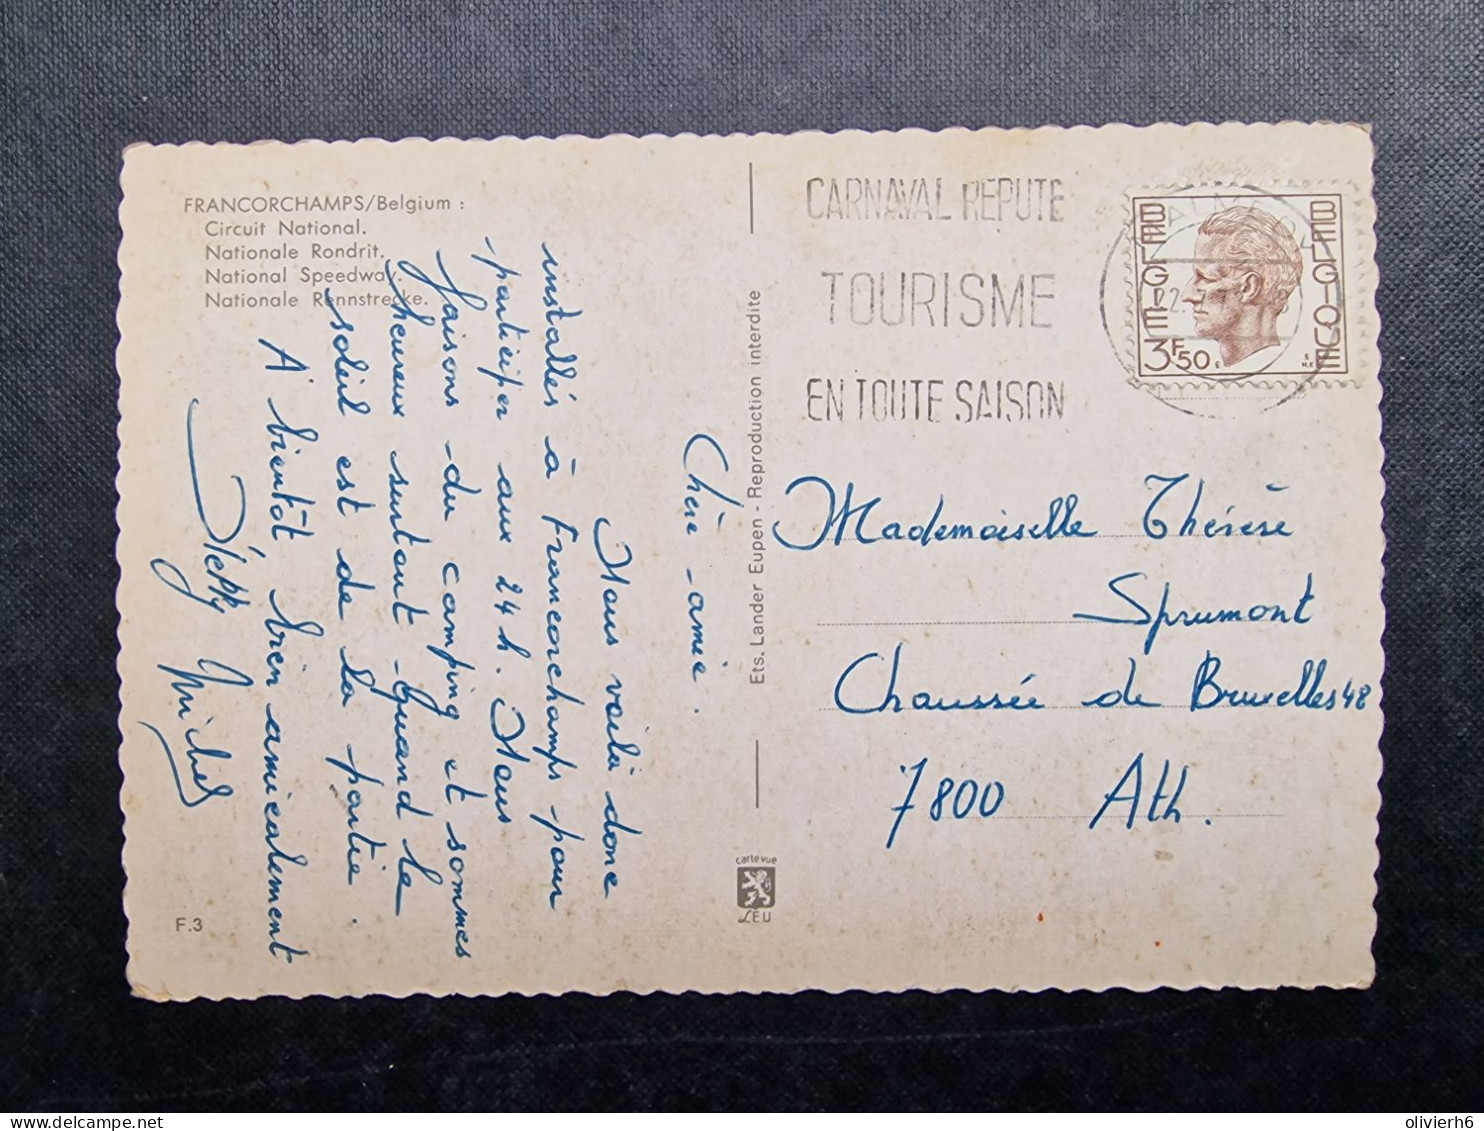 FRANCORCHAMPS/Belgium :
Circuit National.
Nationale Rondrit.
National Speedway.
Nationale Rennstrecke.
Chère amie.
Nous voilà donc
installés à Francorchamps pour
participer aux 24 h. Nous
faisons du camping et sommes
heureux surtout quand le
soleil est de la partie.
A bientôt bien amicalement
Michel
F.3
Ets. Lander Eupen - Reproduction interdite
carte vue
LEU
CARNAVAL REPUTE
TOURISME
EN TOUTE SAISON
BELGIE
BELGIQUE
3F50
Mademoiselle Thérèse
Sprumont
Chaussée de Bruxelles 48
7800 Ath.
olivierh6